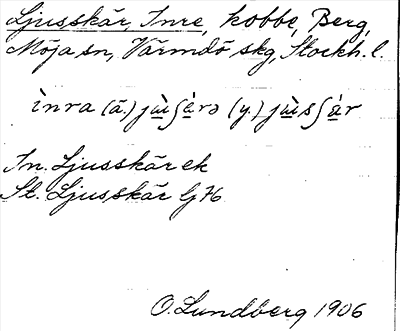 Ljusskär, Inre, kobbe, Berg,
Möja sn, Värmdö skg, Stockh. l.
ìnra (ä.) jùsʃàrə (y.) jùsʃàr
In. Ljusskär ek
St. Ljusskär Gj 76
O. Lundberg 1906